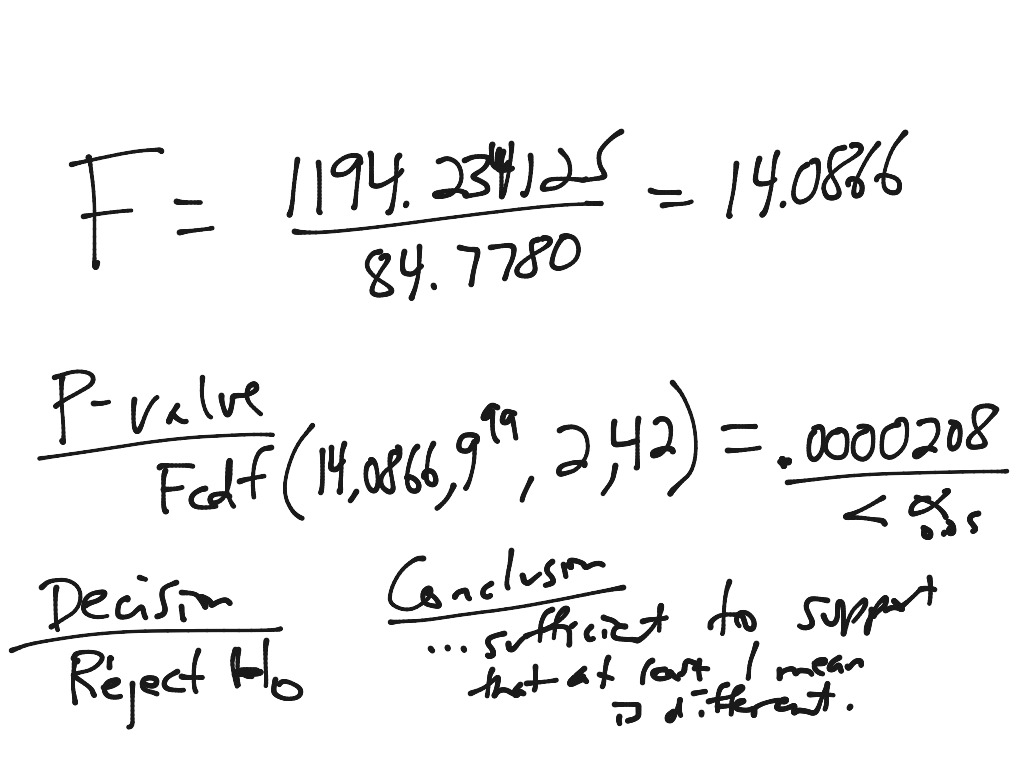 F = 1194.234125 / 84.7780 = 14.0866
P-value
Fcdf(14.0866, 9^99, 2, 42) = .0000208
< α 0.05
Decision
Reject H₀
Conclusion
... sufficient to support
that at least 1 mean
is different.